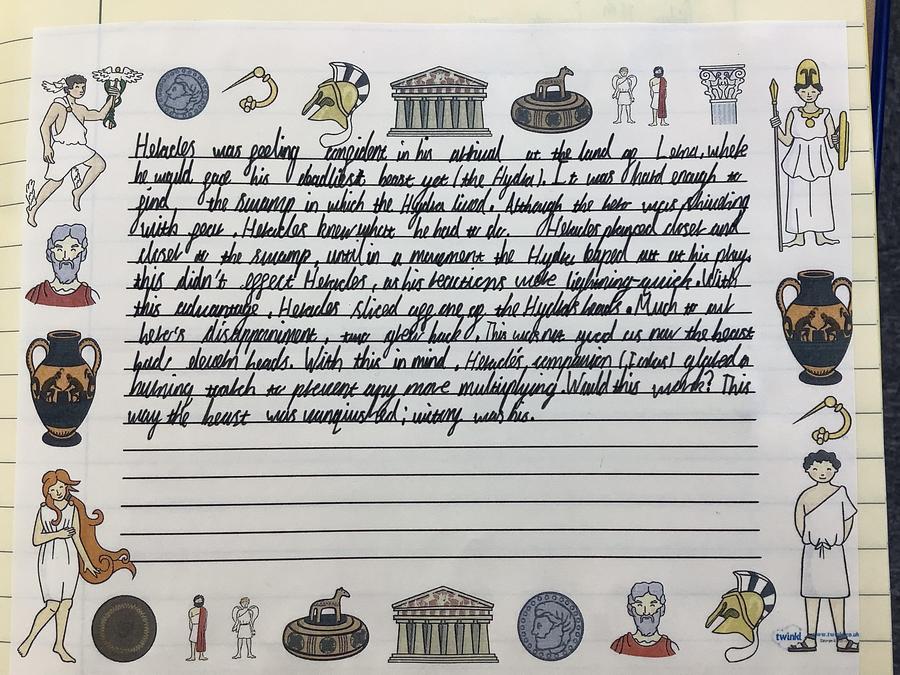 Heracles was feeling confident in his arrival at the land of Lerna, where
he would face his deadliest beast yet (the Hydra). It was hard enough to
find the swamp in which the Hydra lived. Although the hero was shivering
with fear, Heracles knew what he had to do. Heracles plunged closer and
closer to the swamp, until in a movement the Hydra leaped out at his prey.
this didn't effect Heracles, as his reactions were lightning-quick. With
this advantage, Heracles sliced off one of the Hydra's heads. Much to out
hero's disappoinment, two grew back. This was not good as now the beast
had eleven heads. With this in mind, Heracles companion (Iolas) a
burning torch to prevent any more multiplying. Would this work? This
way the beast was vanquished; victory was his.
twinkl www.twinkl.co.uk